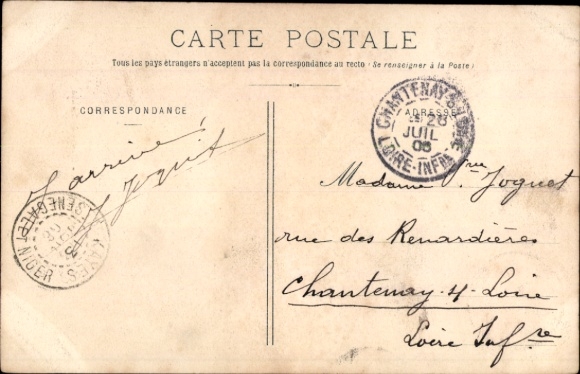 CARTE POSTALE
Tous les pays étrangers n'acceptent pas la correspondance au recto (Se renseigner à la Poste)
CORRESPONDANCE
ADRESSE
CHANTENAY-S
28
JUIL
06
LOIRE-INFRE
J'arrive!
Joguet
KAYES
SENEGAL ET NIGER
Madame Joguet
rue des Renardières
Chantenay-s-Loire
Loire Infre